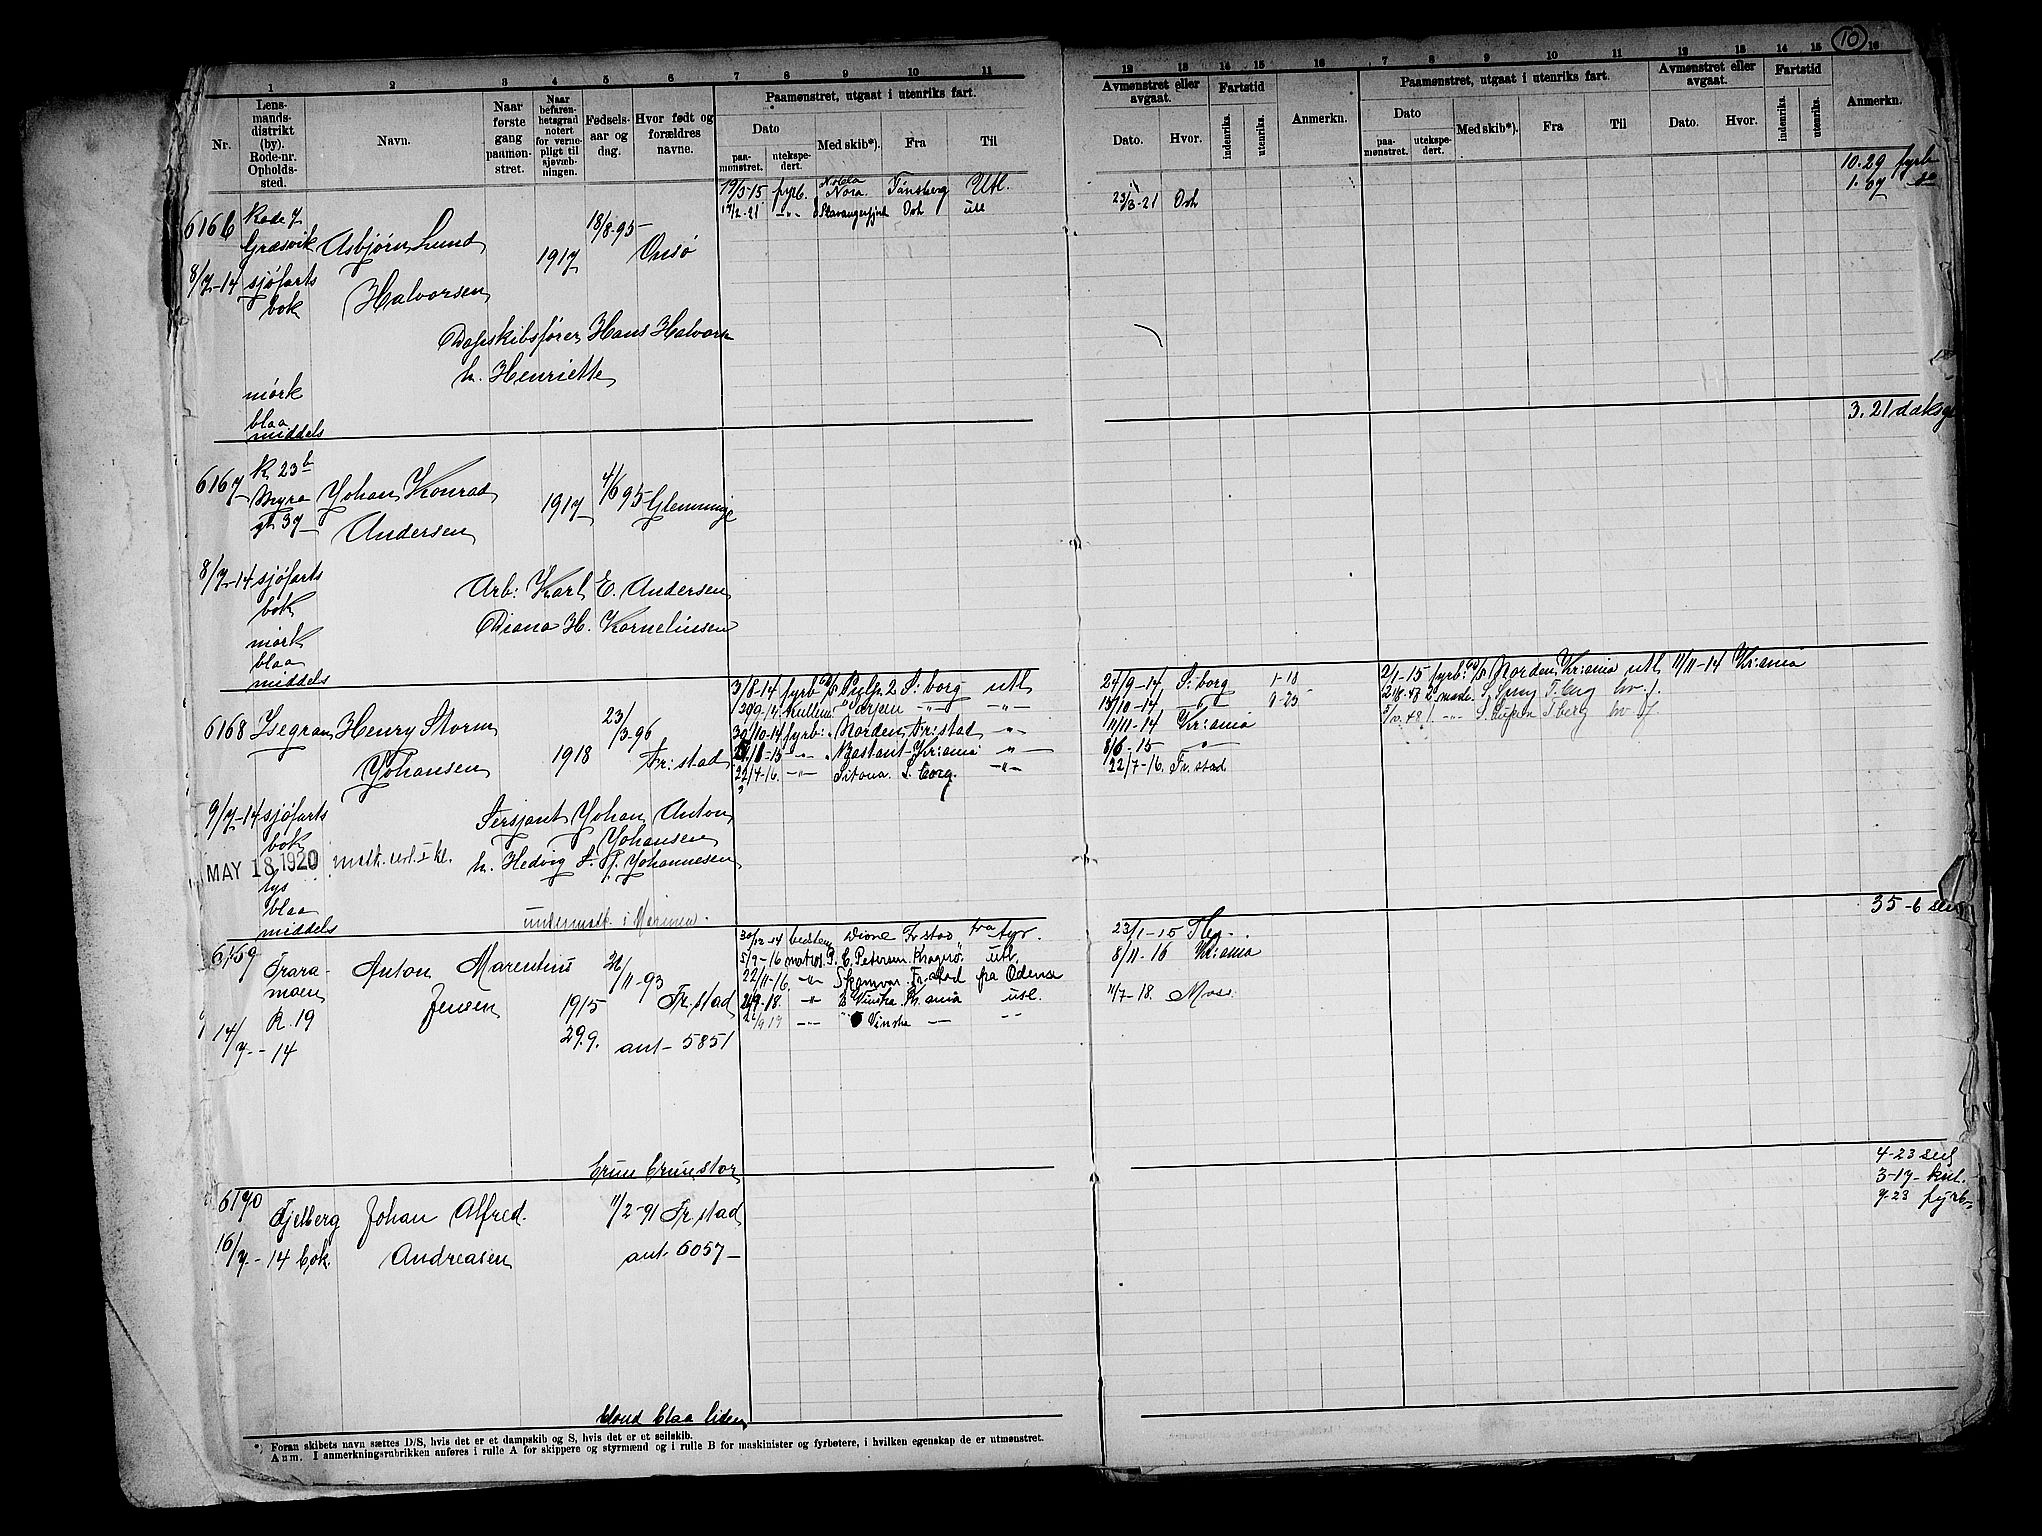 10
1 2 3 4 5 6 7 8 9 10 11 12 13 14 15 16 7 8 9 10 11 12 13 14 15 16
Nr.
Lens-
mands-
distrikt
(by).
Rode-nr.
Opholds-
sted.
Navn.
Naar
første
gang
paamøn-
stret.
Naar
befaren-
hetsgrad
notert
for verne-
pligt til
sjøvæb-
ningen.
Fødsels-
aar og
dag.
Hvor født og
forældres
navne.
Paamønstret, utgaat i utenriks fart.
Dato
paa-
mønstret.
utekspe-
dert.
Med skib*).
Fra
Til
Avmønstret eller
avgaat.
Dato.
Hvor.
Fartstid
indenriks.
utenriks.
Anmerkn.
Paamønstret, utgaat i utenriks fart.
Dato
paa-
mønstret.
utekspe-
dert.
Med skib*).
Fra
Til
Avmønstret eller
avgaat.
Dato.
Hvor.
Fartstid
indenriks.
utenriks.
Anmerkn.
19/5-15 fyrb. Nora. Tønsberg Utl.
17/2-21 -"- Stavangerfjord Osl utl
23/3-21 Osl
10-29 fyrb
1-07 do
6166 Rode 7 18/8-95
Græsvik Asbjørn Lund 1917 Onsø
8/7-14 sjøfarts
bok Halvorsen
Dampskibsfører Hans Halvorsen
h. Henriette
mørk
blaa
middels
3.21 daksg
6167 R 23 b
Myra Johan Konrad 1917 4/6 95 Glemminge
gt 37 Andersen
8/7-14 sjøfarts Arb: Karl E. Andersen
bok Diana H. Kornelinsen
mørk
blaa
middels
3/8-14 fyrb Pulp 2 S:borg utl 24/9-14 S:borg 1-18
2/1-15 fyrb: D/S Norden Kr:ania utl 11/11-14 Kr:ania
6168 Isegran Henry Storm 23/3-96
Johansen 1918 Fr:stad
30/10-14 fyrb: Norden Fr:stad -"- 11/11-14 Kr:ania
-"- Bastant Kr:ania -"- 8/6-15 -"-
22/4-16 -"- Sitona S.borg. -"- 22/7-16. Fr.stad
9/7-14 sjøfarts Sersjant Johan Anton
bok Johansen
MAY 18 1920 h. Hedvig S. J. Johannesen
lys
blaa
middels undermask. i Marinen.
35-6
6169 Trara- Anton Marentius
moen Jensen 1915 Fr.stad
R.19 29.9. ant- 5851
14/7--14
30/12-14 Dione Fr stad fra Tyr. 23/1-15 Tbg.
5/9-16 matros P. C. Petersen Kragerø. utl. 8/11-16 Kr:ania
22/11-16. -"- Fr.stad pa Odense
-"- Vinska Kr.ania utl. 11/7-18. Moss.
-"- Vinska -"- -"-
brun brun stor
6170 Fjelberg Johan Alfred. 11/2-91 Fr.stad
16/7.-14 bok. Andreasen ant 6057-
4-23 seil
3-17- kul.
9-23 fyrb.
blond blaa liden
*) Foran skibets navn sættes D/S, hvis det er et dampskib og S, hvis det er et seilskib.
Anm. I anmerkningsrubrikken anføres i rulle A for skippere og styrmænd og i rulle B for maskinister og fyrbøtere, i hvilken egenskap de er utmønstret.